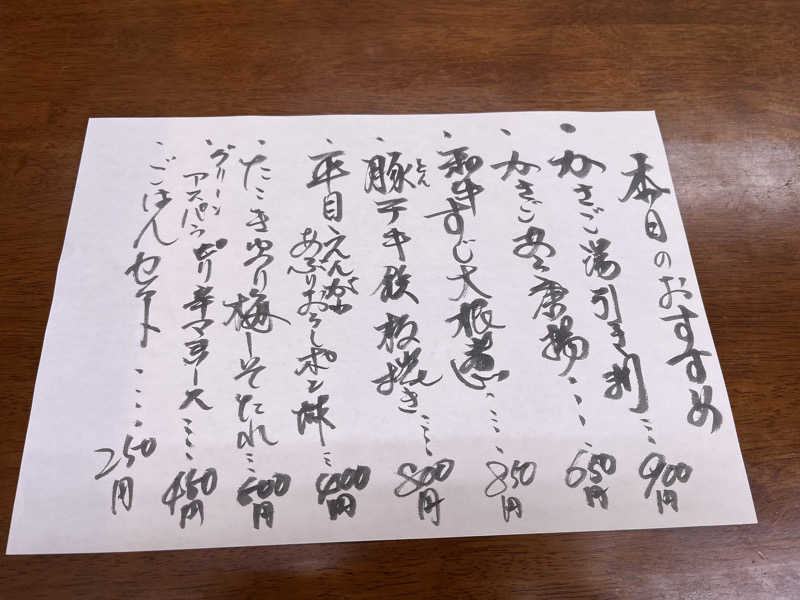 本日のおすすめ
・かさご湯引き刺…900円
・かさご 唐揚…650円
・和牛すじ大根煮…850円
・豚テキ鉄板焼き…800円
とん
・平目、えんがわ
あぶりおろしポン酢…400円
・たこきゅうり梅しそたれ…600円
・グリーン
アスパラ ピリ辛マヨネーズ…450円
・ごはんセット…250円